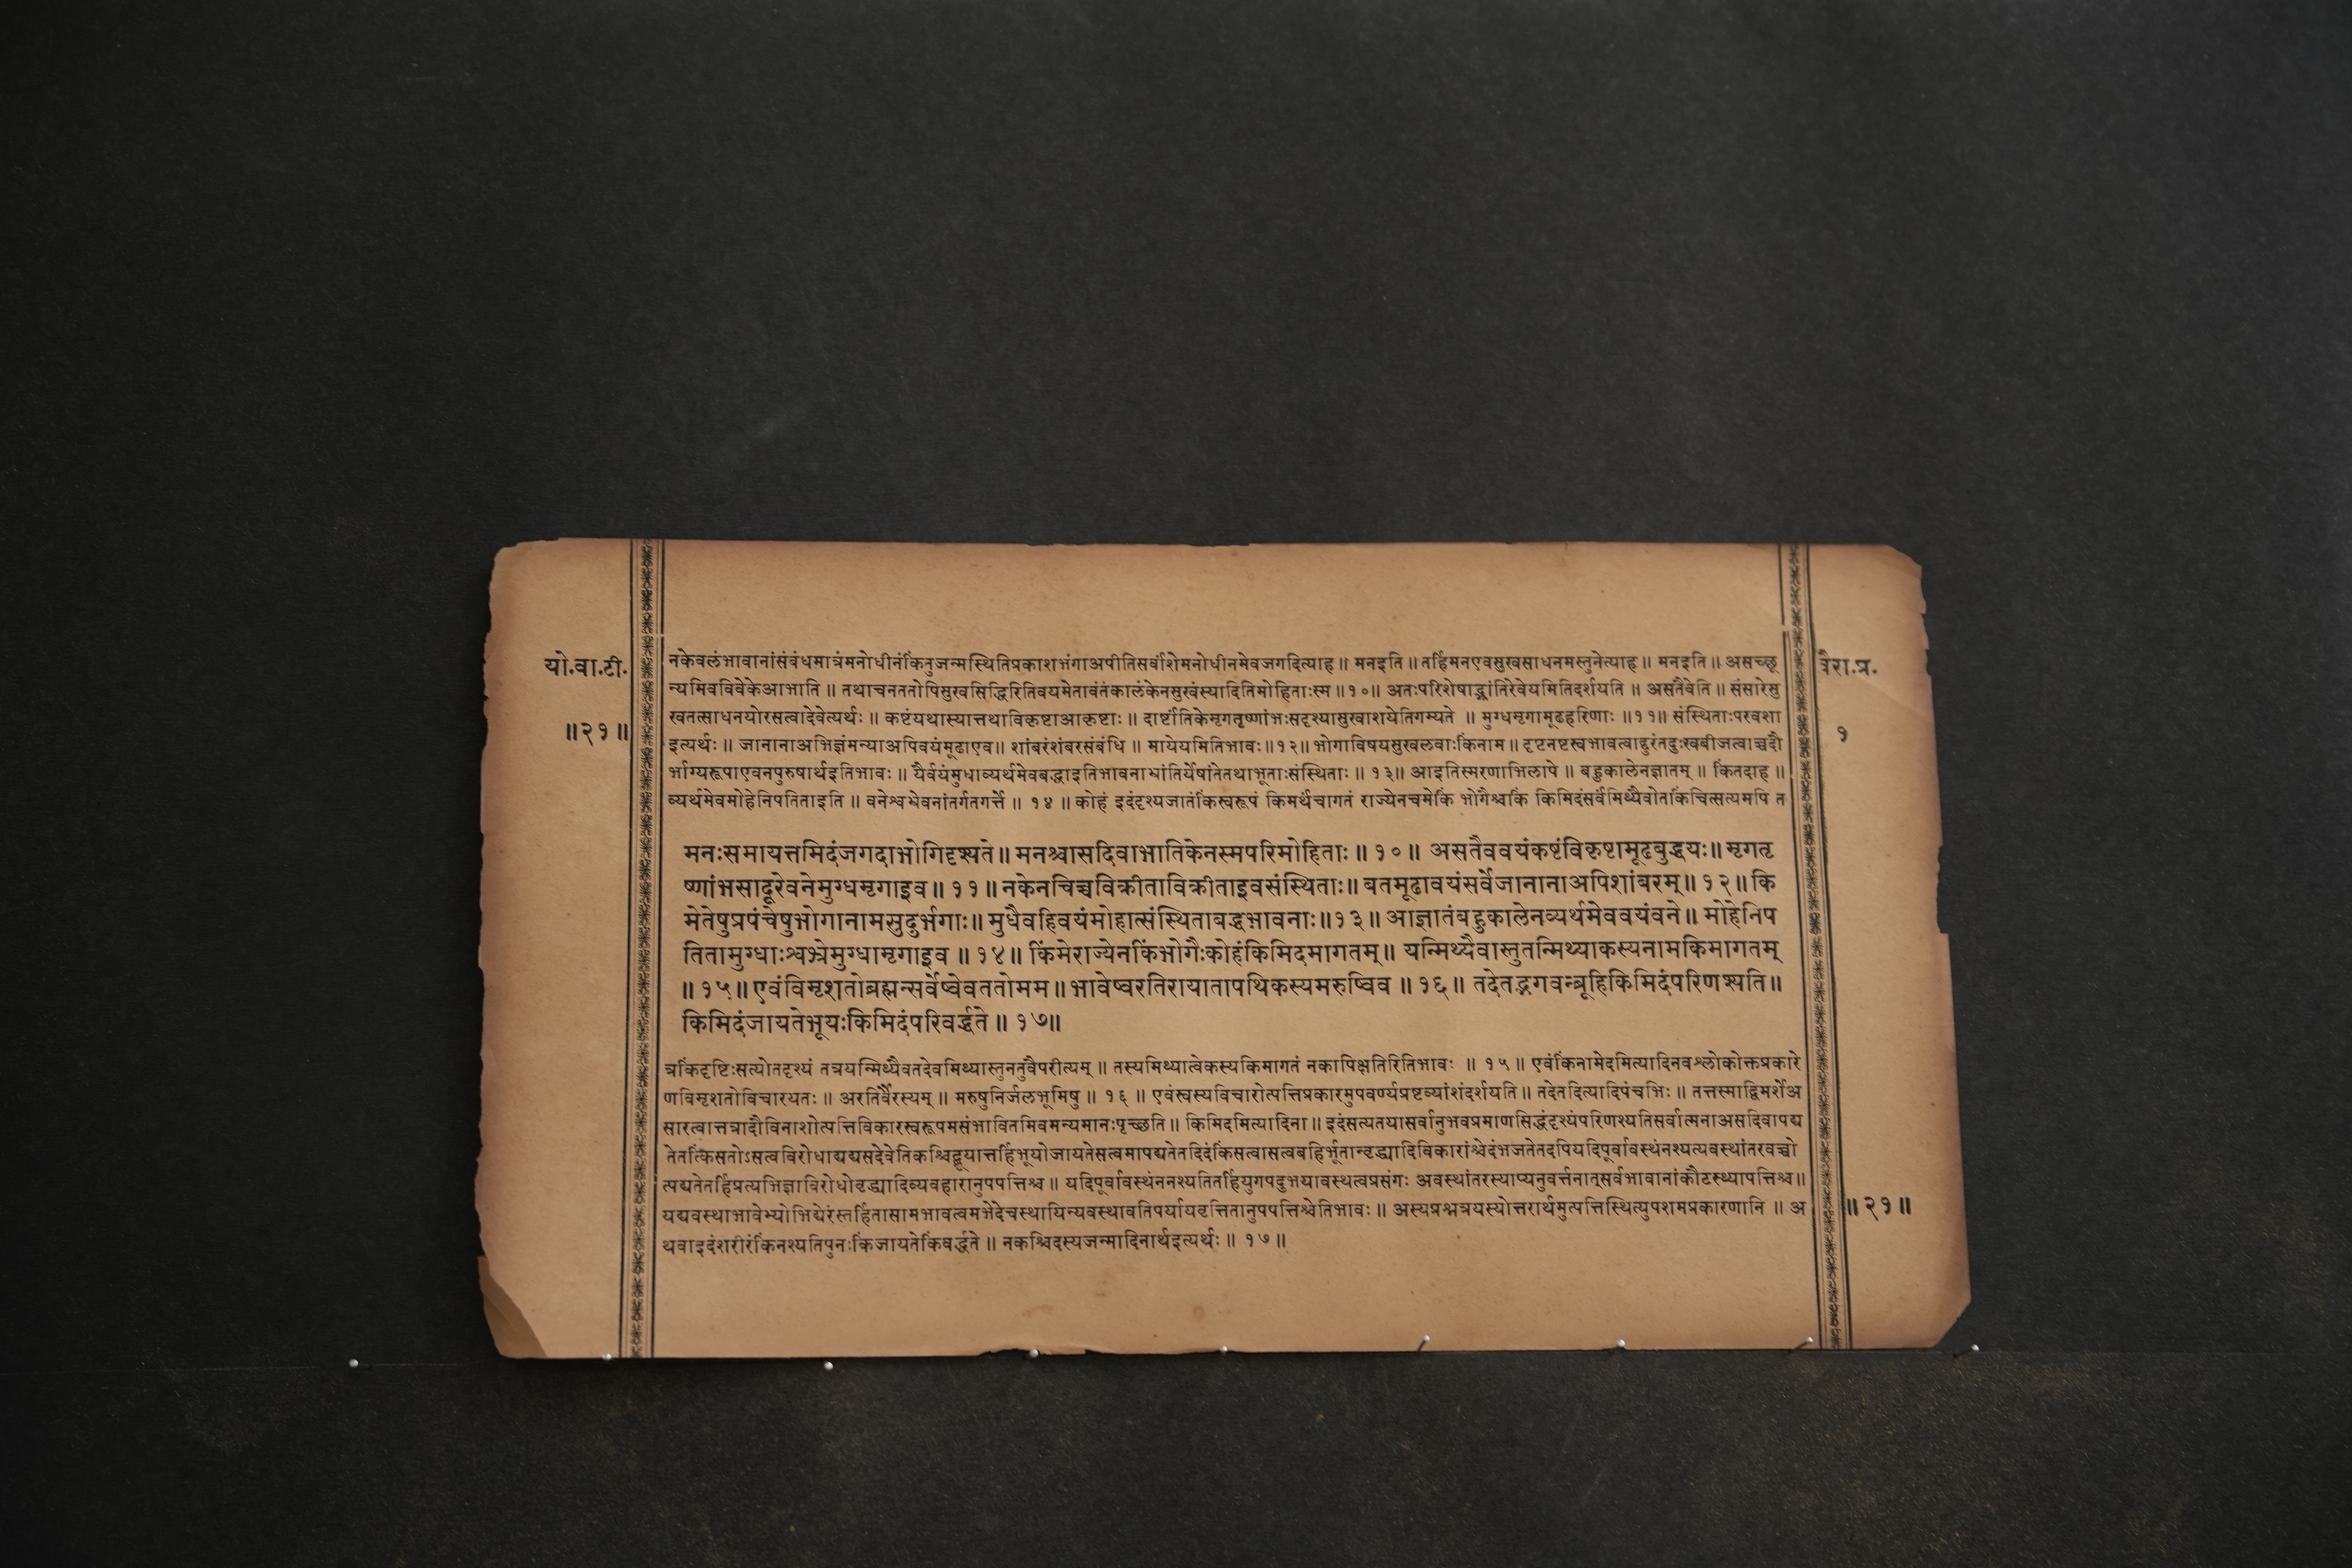 यो.वा.टी.
॥२१॥
नकेवलंभावानांसंबंधमात्रंमनोधीनंकिंतुजन्मस्थितिप्रकाशभंगाअपीतिसर्वांशेमनोधीनमेवजगदित्याह ॥ मनइति ॥ तर्हिमनएवसुखसाधनमस्तुनेत्याह ॥ मनइति ॥ असच्छू
न्यमिवविवेकेआभाति ॥ तथाचनततोपिसुखसिद्धिरितिवयमेतावंतंकालंकेनसुखंस्यादितिमोहिताःस्म ॥१०॥ अतःपरिशेषाद्भ्रांतिरेवेयमितिदर्शयति ॥ असतैवेति ॥ संसारेसु
खतत्साधनयोरसत्वादेवेत्यर्थः ॥ कष्टंयथास्यात्तथाविकृष्टाआकृष्टाः ॥ दार्ष्टांतिकेमृगतृष्णांभःसदृश्यासुखाशयेतिगम्यते ॥ मुग्धमृगामूढहरिणाः ॥११॥ संस्थिताःपरवशा
इत्यर्थः ॥ जानानाअभिज्ञंमन्याअपिवयंमूढाएव॥ शांबरंशंबरसंबंधि ॥ मायेयमितिभावः॥१२॥ भोगाविषयसुखलवाःकिंनाम॥ दृष्टनष्टस्वभावत्वाद्दुरंतदुःखबीजत्वाच्चदौ
र्भाग्यरूपाएवनपुरुषार्थइतिभावः ॥ यैर्वयंमुधाव्यर्थमेवबद्धाइतिभावनाभ्रांतिर्येषांतेतथाभूताःसंस्थिताः ॥ १३॥ आइतिस्मरणाभिलापे ॥ बहुकालेनज्ञातम् ॥ किंतदाह ॥
व्यर्थमेवमोहेनिपतिताइति ॥ वनेश्वभ्रेवनांतर्गतगर्त्ते ॥ १४ ॥ कोहं इदंदृश्यजातंकिंस्वरूपं किमर्थंचागतं राज्येनचमेकिं भोगैश्चकिं किमिदंसर्वंमिथ्यैवोतकिंचित्सत्यमपि त
मनःसमायत्तमिदंजगदाभोगिदृश्यते॥ मनश्चासदिवाभातिकेनस्मपरिमोहिताः॥ १०॥ असतैववयंकष्टंविकृष्टामूढबुद्धयः॥ मृगतृ
ष्णांभसादूरेवनेमुग्धमृगाइव॥ ११॥ नकेनचिच्चविक्रीताविक्रीताइवसंस्थिताः॥ बतमूढावयंसर्वेजानानाअपिशांबरम्॥ १२॥ कि
मेतेषुप्रपंचेषुभोगानामसुदुर्भगाः॥ मुधैवहिवयंमोहात्संस्थिताबद्धभावनाः॥१३॥ आज्ञातंबहुकालेनव्यर्थमेववयंवने॥ मोहेनिप
तितामुग्धाःश्वभ्रेमुग्धामृगाइव ॥ १४॥ किंमेराज्येनकिंभोगैःकोहंकिमिदमागतम्॥ यन्मिथ्यैवास्तुतन्मिथ्याकस्यनामकिमागतम्
॥१५॥ एवंविमृशतोब्रह्मन्सर्वेष्वेवततोमम॥ भावेष्वरतिरायातापथिकस्यमरुष्विव ॥ १६॥ तदेतद्भगवन्ब्रूहिकिमिदंपरिणश्यति॥
किमिदंजायतेभूयःकिमिदंपरिवर्द्धते ॥ १७॥
त्रकिंदृष्टिःसत्योतदृश्यं तत्रयन्मिथ्यैवतदेवमिथ्यास्तुनतुवैपरीत्यम् ॥ तस्यमिथ्यात्वेकस्यकिमागतं नकापिक्षतिरितिभावः ॥ १५॥ एवंकिंनामेदमित्यादिनवश्लोकोक्तप्रकारे
णविमृशतोविचारयतः ॥ अरतिर्वैरस्यम् ॥ मरुषुनिर्जलभूमिषु ॥ १६ ॥ एवंस्वस्यविचारोत्पत्तिप्रकारमुपवर्ण्यप्रष्टव्यांशंदर्शयति ॥ तदेतदित्यादिपंचभिः ॥ तत्तस्माद्विमर्शेअ
सारत्वात्तत्रादौविनाशोत्पत्तिविकारस्वरूपमसंभावितमिवमन्यमानःपृच्छति॥ किमिदमित्यादिना॥ इदंसत्यतयासर्वानुभवप्रमाणसिद्धंदृश्यंपरिणश्यतिसर्वात्मनाअसदिवापद्य
तेतत्किंसतोऽसत्वविरोधाद्यद्यसदेवेतिकश्चिद्ब्रूयात्तर्हिभूयोजायतेसत्वमापद्यतेतदिदंकिंसत्वासत्वबहिर्भूतान्वृद्ध्यादिविकारांश्चेदंभजतेतदपियदिपूर्वावस्थंनश्यत्यवस्थांतरवच्चो
त्पद्यतेतर्हिप्रत्यभिज्ञाविरोधोवृद्ध्यादिव्यवहारानुपपत्तिश्च॥ यदिपूर्वावस्थंननश्यतितर्हियुगपदुभयावस्थत्वप्रसंगः अवस्थांतरस्याप्यनुवर्त्तनात्सर्वभावानांकौटस्थ्यापत्तिश्च॥
यद्यवस्थाभावेभ्योभिद्येरंस्तर्हितासामभावत्वमभेदेचस्थायिन्यवस्थावतिपर्यायवृत्तितानुपपत्तिश्चेतिभावः ॥ अस्यप्रश्नत्रयस्योत्तरार्थमुत्पत्तिस्थित्युपशमप्रकरणानि ॥ अ
थवाइदंशरीरंकिंनश्यतिपुनःकिंजायतेकिंवर्द्धते ॥ नकश्चिदस्यजन्मादिनार्थइत्यर्थः॥ १७॥
वैरा.प्र.
१
॥२१॥